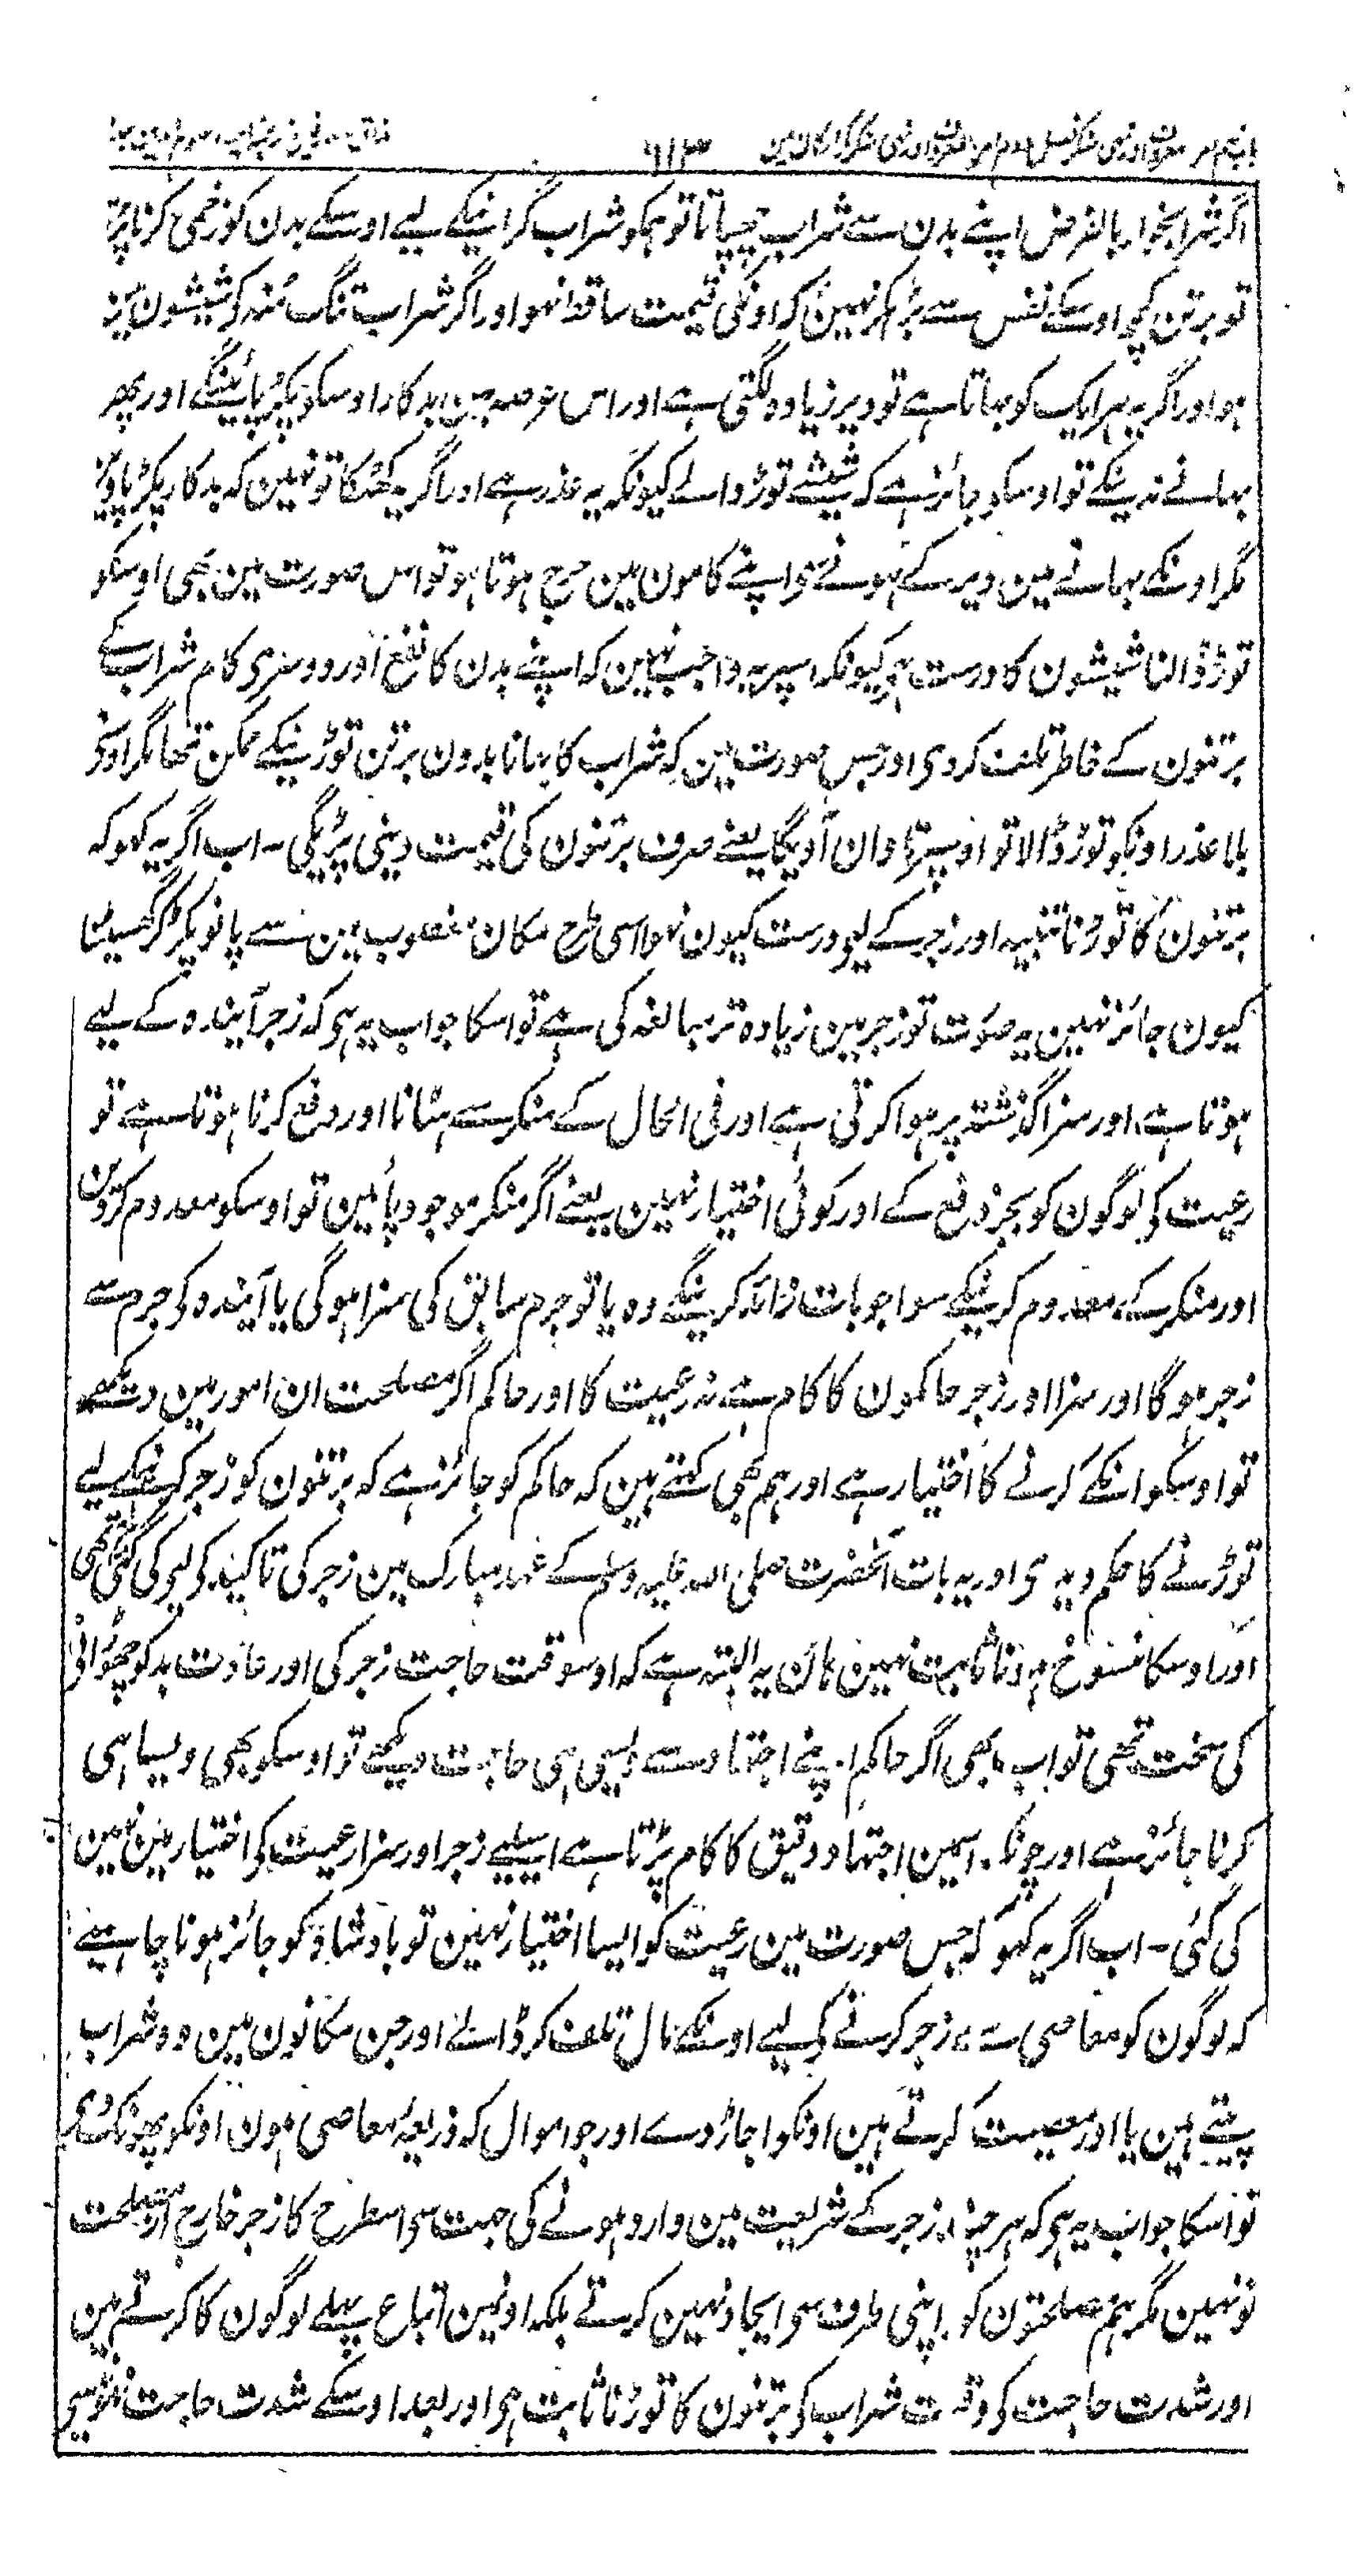 باب نہم امر معروف اور نہی منکر فصل دوم امر معروف اور نہی منکر کے ارکان میں ۶۱۳ مذاق العارفین ترجمہ احیاء علوم الدین جلد
اگر شرابخوار بالفرض اپنے بدن سے شراب چھپاتا تو ہمکو شراب گرانیکے لیے اوسکے بدن کو زخمی کرنا پڑتا
تو برتن کچھ اوسکے نفس سے بڑہکر نہین کہ اونکی قیمت ساقط نہو اور اگر شراب تنگ منہ کو شیشون مین
ہو اور اگر یہ ہر ایک کو بہاتا ہے تو دیر زیادہ لگتی ہے اور اس عرصہ مین بدکار اوسکو پکڑ پائینگے اور پھر
بہانے نہ دینگے تو اوسکو جائز ہے کہ شیشے توڑ ڈالے کیونکہ یہ عذر ہے اور اگر یہ کھٹکا تو نہین کہ بدکار پکڑ پاوین
مگر اونکے بہانے مین دیر کے ہونے سی اپنے کامون مین حرج ہوتا ہو تو اس صورت مین بھی اوسکو
توڑ ڈالنا شیشون کا درست ہی کیونکہ اسپر یہ واجب نہین کہ اپنے بدن کا نفع اور دوسری کام شراب کے
برتنون کے خاطر تلف کردی اور جس صورت مین کہ شراب کا بہانا بدون برتن توڑنیکے ممکن تھا مگر اوسنے
بلا عذر اونکو توڑ ڈالا تو اوسپر تاوان آویگا یعنے صرف برتنون کی قیمت دینی پڑیگی ۔ اب اگر یہ کہو کہ
برتنون کا توڑنا تنبیہ اور زجر کے لیے درست کیون نہوا اسی طرح مکان مغصوب مین سے پانو پکڑ کر گھسیٹنا
کیون جائز نہین یہ صورت تو زجر مین زیادہ تر مبالغہ کی ہے تو اسکا جواب یہ ہی کہ زجر آیندہ کے لیے
ہوتا ہے اور سزا گذشتہ پر ہوا کرتی ہے اور فی الحال کے منکر سے ہٹانا اور دفع کرنا ہوتا ہے تو
رعیت کی لوگون کو بجز دفع کے اور کوئی اختیار نہین یعنے اگر منکر موجود پائین تو اوسکو معدوم کردین
اور منکر کے معدوم کرنیکے سوا جو بات زائد کرینگے وہ یا تو جرم سابق کی سزا ہوگی یا آیندہ کی جرم سے
زجر ہوگا اور سزا اور زجر حاکمون کا کام ہے نہ رعیت کا اور حاکم اگر مصلحت ان امور مین دیکھے
تو اوسکو انکے کرنے کا اختیار ہے اور ہم بھی کہتے ہین کہ حاکم کو جائز ہے کہ برتنون کو زجر کرنیکے لیے
توڑنے کا حکم دیدی اور یہ بات آنحضرت صلی اللہ علیہ وسلم کے عہد مبارک مین زجر کی تاکید کو لیے کی گئی تھی
اور اوسکا منسوخ ہونا ثابت نہین ہان یہ البتہ ہے کہ اوسوقت حاجت زجر کی اور عادت بد کو چھڑوانی
کی سخت تھی تو اب بھی اگر حاکم اپنے اجتہاد سے ویسی ہی حاجت دیکھے تو اوسکو بھی ویسا ہی
کرنا جائز ہے اور چونکہ اسمین اجتہاد دقیق کا کام پڑتا ہے اسلیے زجر اور سزا رعیت کی اختیار مین نہین
کی گئی ۔ اب اگر یہ کہو کہ جس صورت مین رعیت کو ایسا اختیار نہین تو بادشاہ کو جائز ہونا چاہیے
کہ لوگون کو معاصی سے زجر کرنے کے لیے اونکے مال تلف کر ڈالے اور جن مکانون مین وہ شراب
پیتے ہین یا اور معصیت کرتے ہین اونکو اجاڑ دے اور جو اموال کہ ذریعہ معاصی ہون اونکو پھونک دی
تو اسکا جواب یہ ہی کہ ہرچند زجر کے شریعت مین وارد ہونے کی جہت سی اسطرح کا زجر خارج از مصلحت
تو نہین مگر ہم مصلحتون کو اپنی طرف سی ایجاد نہین کرتے بلکہ اونمین اتباع پہلے لوگون کا کرتے ہین
اور شدت حاجت کی وقت شراب کی برتنون کا توڑنا ثابت ہی اور بعد اوسکے شدت حاجت نہونیسی